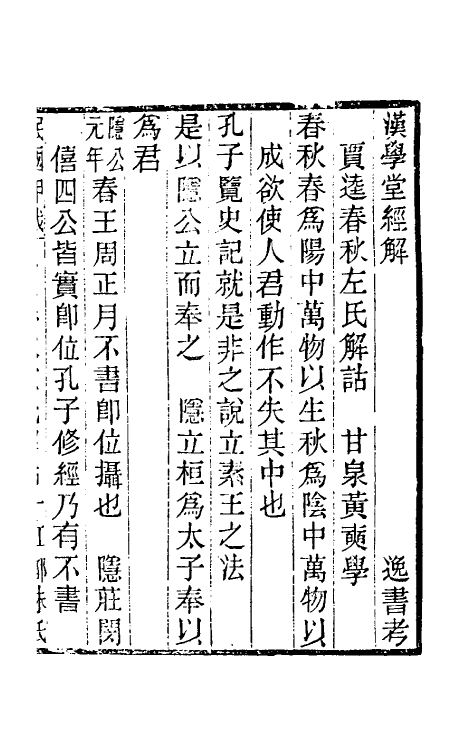 漢學堂經解　逸書考
賈逵春秋左氏解詁　甘泉黃奭學
春秋春爲陽中萬物以生秋爲陰中萬物以
成欲使人君動作不失其中也
孔子覽史記就是非之說立素王之法
是以隱公立而奉之　隱立桓爲太子奉以
爲君
隱公元年春王周正月不書卽位攝也　隱莊閔
僖四公皆實卽位孔子修經乃有不書